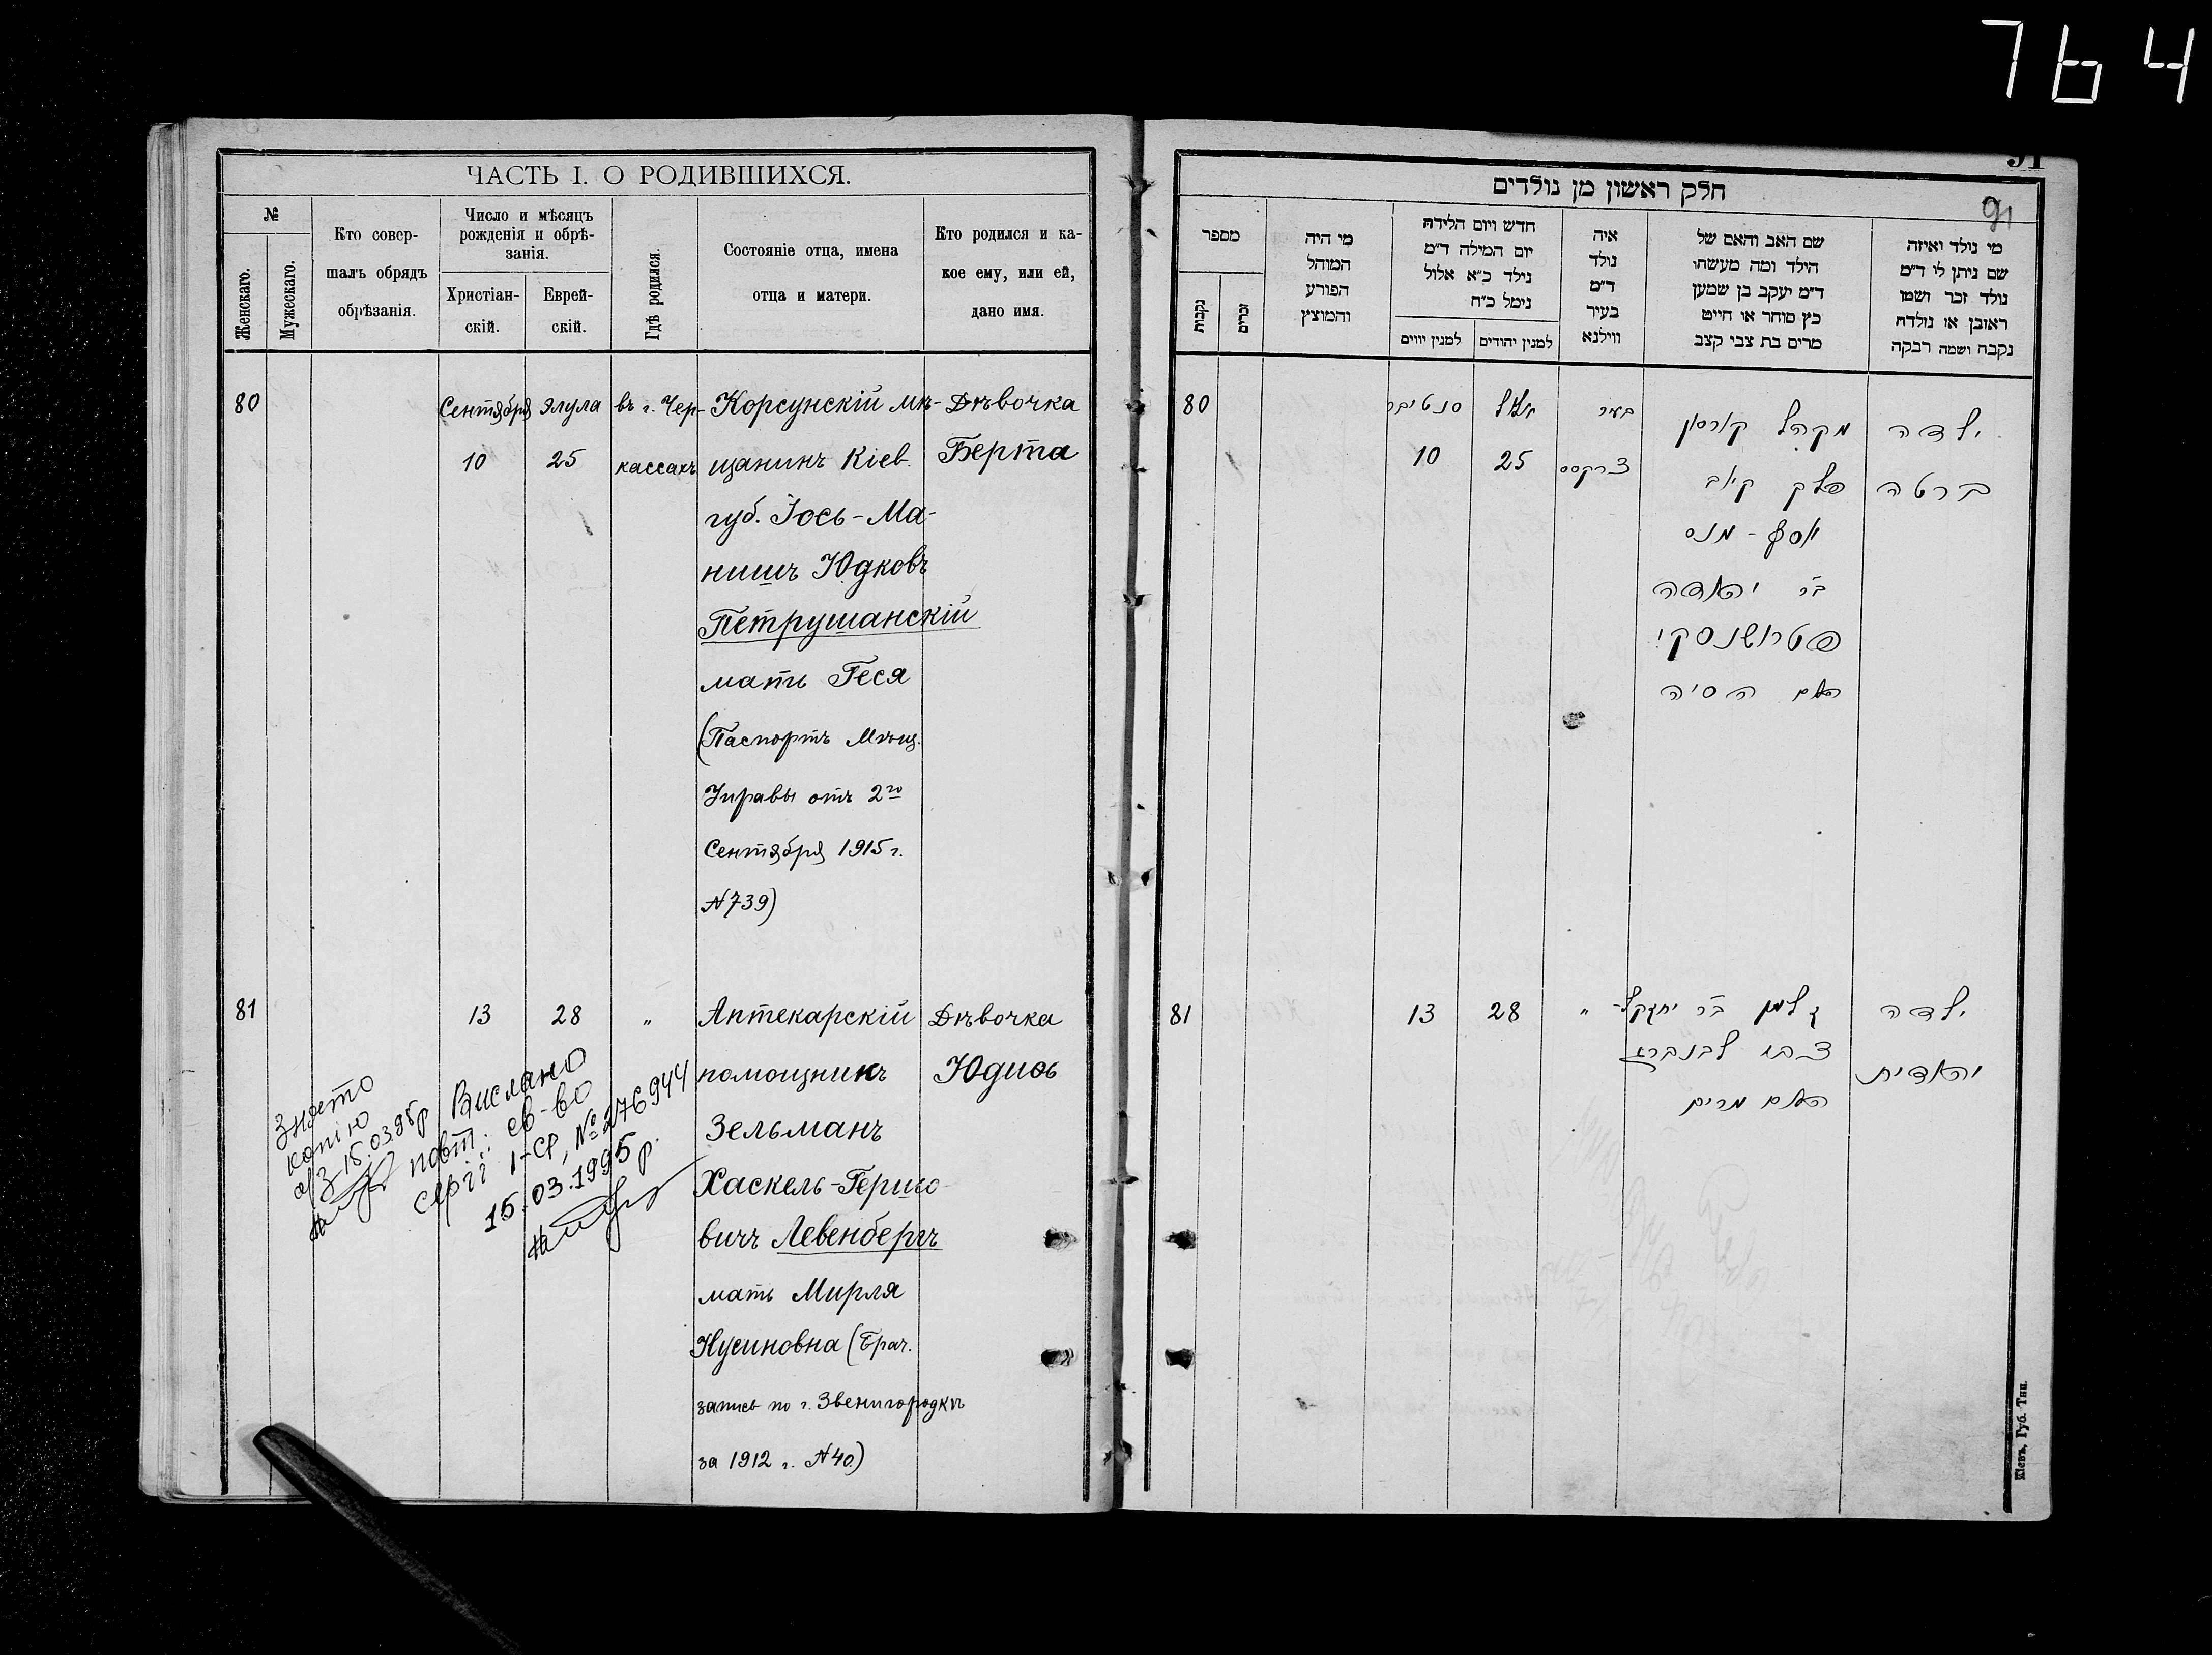 764
ЧАСТЬ I. О РОДИВШИХСЯ.
№
Женскаго.
Мужескаго.
Кто совер-
шалъ обрядъ
обрѣзанія.
Число и мѣсяцъ
рожденія и обрѣ-
занія.
Христіан-
скій.
Еврей-
скій.
Гдѣ родился.
Состояніе отца, имена
отца и матери.
Кто родился и ка-
кое ему, или ей,
дано имя.
80
Сентября
10
Элула
25
въ г. Чер-
кассахъ
Корсунскій мѣ-
щанинъ Кіев.
губ. Іось-Ма-
нишъ Юдковъ
Петрушанскій
мать Геся
(Паспортъ Мѣщ.
Управы отъ 2го
Сентября 1915 г.
№739)
Дѣвочка
Берта
81
13
28
"
Аптекарскій
помощникъ
Зельманъ
Хаскель-Гершо-
вичъ Левенбергъ
мать Мирля
Нусиновна (Брач.
запись по г. Звенигородкѣ
за 1912 г. №40)
Дѣвочка
Юдиѳь
Знято
копію
а/з 15.03.95р
Вислано
повт. св-во
серії І-СР, № 276944
15.03.1995 р.
91
91
חלק ראשון מן נולדים
מספר
נקבות
זכרים
מי היה
המוהל
הפורע
והמוצץ
חדש ויום הלידה
יום המילה ד״מ
נילד כ״א אלול
נימל כ״ח
למנין יווים
למנין יהודים
איה
נולד
ד״מ
בעיר
ווילנא
שם האב והאם של
הילד ומה מעשהו
ד״מ יעקב בן שמען
כץ סוחר או חייט
מרים בת צבי קצב
מי נולד ואיזה
שם ניתן לו ד״מ
נולד זכר ושמו
ראובן או נולדה
נקבה ושמה רבקה
80
סנטיבר
10
אלול
25
בעיר
צרקסס
מקהל קורסון
פלך קיוב
יוסף-מנס
ב״ר יהודה
פטרושנסקי
האם הסיה
ילדה
ברטה
81
13
28
"
זלמן ב״ר יחזקאל-
צבי לבנברג
האם מרים
ילדה
יהודית
Кіевъ, Губ. Тип.